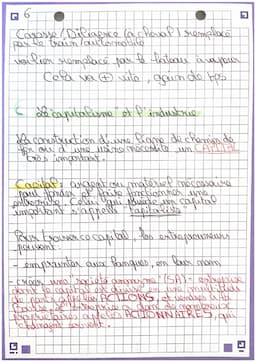 6
Carosse / Diligence (à cheval) remplacé
par le train / automobile
voilier remplacé par le bateau à vapeur
Cela va ⊕ vite, gain de tps
Le capitalisme et l'industrie
La construction d'une ligne de chemin de
fer ou d'une usine nécessite un CAPITAL
très important.
Capital : argent ou matériel nécessaire
pour fonder et faire fonctionner une
entreprise. Celui qui possède un capital
important s'appelle capitaliste
Pour trouver ce capital, les entrepreneurs
peuvent :
- emprunter aux banques, en leur nom
- créer une "société anonyme" (SA) = entreprise
dont le capital est divisé en une multitude
de parts appelées ACTIONS, et vendues à la
propriétaires appelés ACTIONNAIRES, qui
changent souvent.